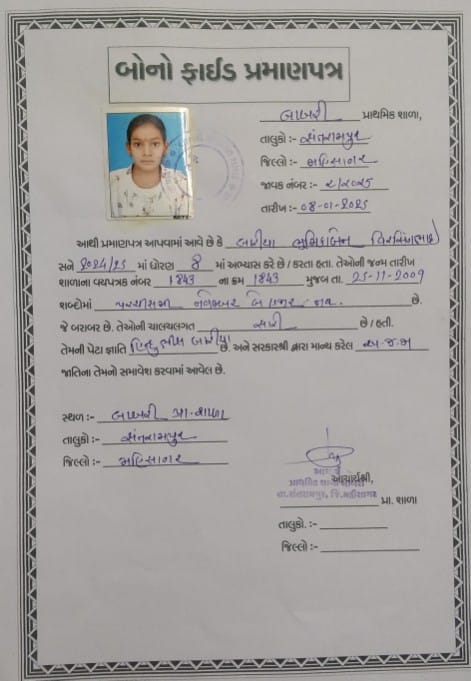 બોનો ફાઈડ પ્રમાણપત્ર
બાબરી પ્રાથમિક શાળા,
તાલુકો :- સંતરામપુર
જિલ્લો :- મહિસાગર
જાવક નંબર :- ૨/૨૦૨૫
તારીખ :- ૦૮-૦૧-૨૦૨૫
આથી પ્રમાણપત્ર આપવામાં આવે છે કે બારીયા ભુમિકાબેન વિરસિંગભાઈ
સને ૨૦૨૪/૨૫ માં ધોરણ 8 માં અભ્યાસ કરે છે / કરતા હતા. તેઓની જન્મ તારીખ
શાળાના વયપત્રક નંબર 1843 ના ક્રમ 1843 મુજબ તા. 25-11-2009
શબ્દોમાં પચ્ચીસમી નવેમ્બર બે હજાર નવ. છે.
જે બરાબર છે. તેઓની ચાલચલગત સારી છે / હતી.
તેમની પેટા જ્ઞાતિ હિન્દુ ભીલ બારીયા છે. અને સરકારશ્રી દ્વારા માન્ય કરેલ અ.જ.જ
જાતિના તેમનો સમાવેશ કરવામાં આવેલ છે.
સ્થળ :- બાબરી પ્રા. શાળા
તાલુકો :- સંતરામપુર
જિલ્લો :- મહિસાગર
આચાર્યશ્રી,
પ્રાથમિક શાળા
તા.સંતરામપુર, જિ.મહીસાગર
પ્રા. શાળા
તાલુકો. :-
જિલ્લો :-